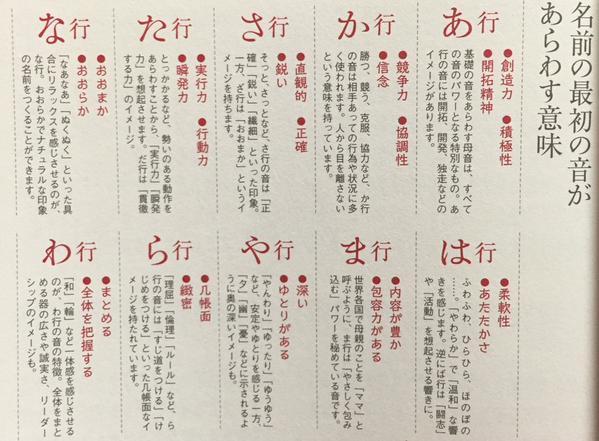 名前の最初の音が
あらわす意味
あ行
●創造力　●積極性
●開拓精神
基礎の音をあらわす母音は、すべて
の音のパワーとなる特別なもの。あ
行の音には開拓、開発、独走などの
イメージがあります。
か行
●競争力　●協調性
●信念
勝つ、競う、克服、協力など、か行
の音は相手あっての行為や状況に多
く使われます。人から目を離さない
という意味を持っています。
さ行
●直観的　●正確
●鋭い
そっと、さっとなど、さ行の音は「正
確」「鋭い」「繊細」といった印象。
一方、ざ行は「おおまか」というイ
メージを持ちます。
た行
●実行力　●行動力
●瞬発力
とっかかるなど、勢いのある動作を
あらわすことから、「実行力」「瞬発
力」を想起させます。だ行は「貫徹
する力」のイメージ。
な行
●おおまか
●おおらか
「なあなあ」「ぬくぬく」といった具
合にリラックスを感じさせるのが、
な行。おおらかでナチュラルな印象
の名前をつくることができます。
は行
●柔軟性
●あたたかさ
ふわふわ、ひらひら、ほのぼの
……。「やわらか」で「温和」な響
きを感じます。逆にば行は「闘志」
や「活動」を想起させる響きに。
ま行
●内容が豊か
●包容力がある
世界各国で母親のことを「ママ」と
呼ぶように、ま行は「やさしく包み
込む」パワーを秘めている音です。
や行
●深い
●ゆとりがある
「やんわり」「ゆったり」「ゆうゆう」
など、安定やゆとりを感じる一方、
「夕」「幽」「愛」などに示されるよ
うに奥の深いイメージも。
ら行
●几帳面
●緻密
「理屈」「倫理」「ルール」など、ら
行の音には「すじ道をつける」「け
じめをつける」といった几帳面なイ
メージを持たれています。
わ行
●まとめる
●全体を把握する
「和」「輪」など一体感を感じさせる
のが、わ行の音の特徴。全体をまと
める器の広さや誠実さ、リーダー
シップのイメージも。